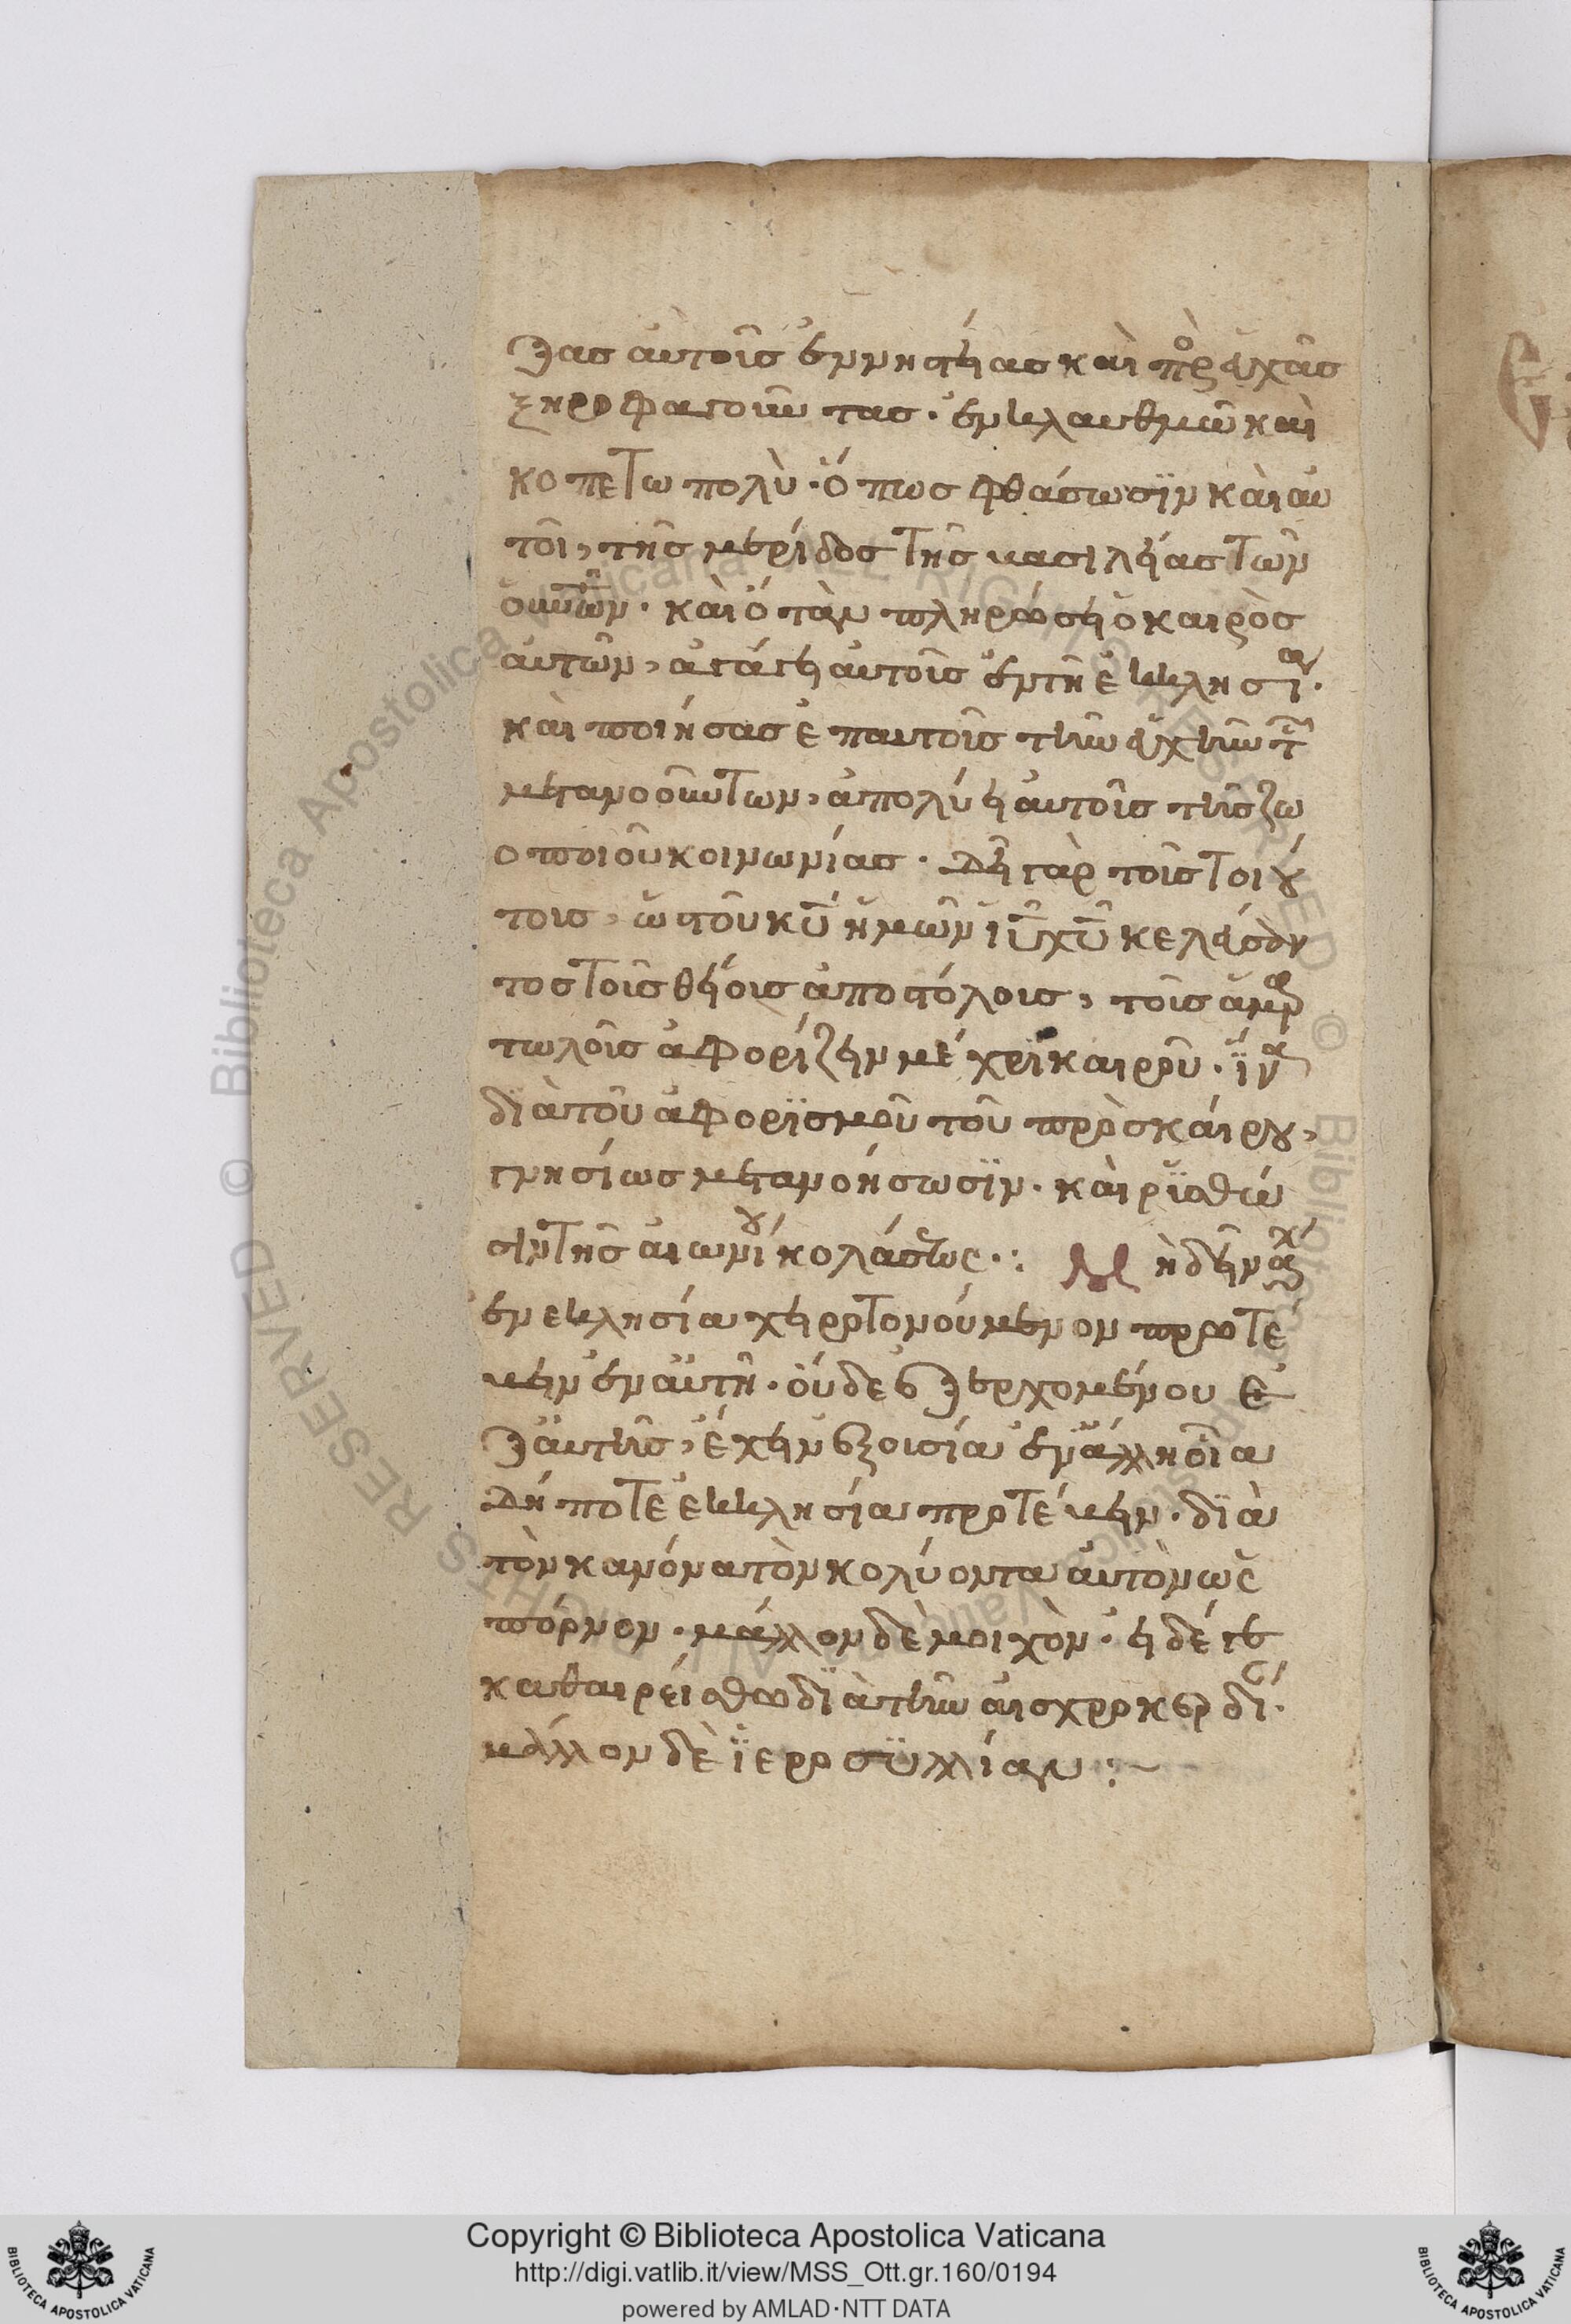 ξας αὐτοῖς ἐν νηστείας καὶ προςευχὰς
ξηροφαγοῦντας· ἐν κλαυθμῶ καὶ
κοπετῶ πολὺ· ὅπως φθάσωσϊν καὶ αυ
τοὶ, τῆς μερίδος τῆς βασιλείας τῶν
οὐνῶν· καὶ ὅταν πληρώσει ὁ καιρὸς
αὐτῶν, ἀγάγει αὐτοῖς ἐν τῆ ἐκκλησία·
καὶ ποιήσας ἐπ αυτοῖς τὴν εὐχὴν τῶν
μετανοούντων, ἀπολύει αὐτοῖς τῆς ζω
οποιοῦ κοινωνίας· δεῖ γὰρ τοῖς τοιού
τοις, ὡς τοῦ κυ ἡμῶν ιυ χυ κελεύσαν
τος τοῖς θείοις ἀποστόλοις, τοῖς ἁμαρ
τωλοῖς ἀφορίζειν μέχρι καιροῦ· ἵνα
διὰ τοῦ ἀφορϊσμοῦ τοῦ πρὸσκάιρου,
γνησίως μετανοήσωσϊν· καὶ ρϊσθώ
σιν τῆς αἰωνίου κολάσεως·: Μηδεὶν
ἐν εκλησία χειροτονούμενον πρωτε
βειν ἐν αὐτῆ· οὐδὲ ἐξερχομένου ἐ
ξ αυτῆς, ἔχειν ἐξουσία ἐν ἄλλη οἵα
δήποτε ἐκκλησία προτέβειν· δϊὰ
τὸν κανόνα τὸν κολύοντα αὐτὸν ὡς
πόρνον· μάλλον δὲ μοιχὸν· εἰ δέ γε
καθαιρείσθω δϊὰ τὴν αἰσχροκερδί·
μάλλον δὲ ϊεροσϋλλίαν:~
Copyright © Biblioteca Apostolica Vaticana
http://digi.vatlib.it/view/MSS_Ott.gr.160/0194
powered by AMLAD·NTT DATA